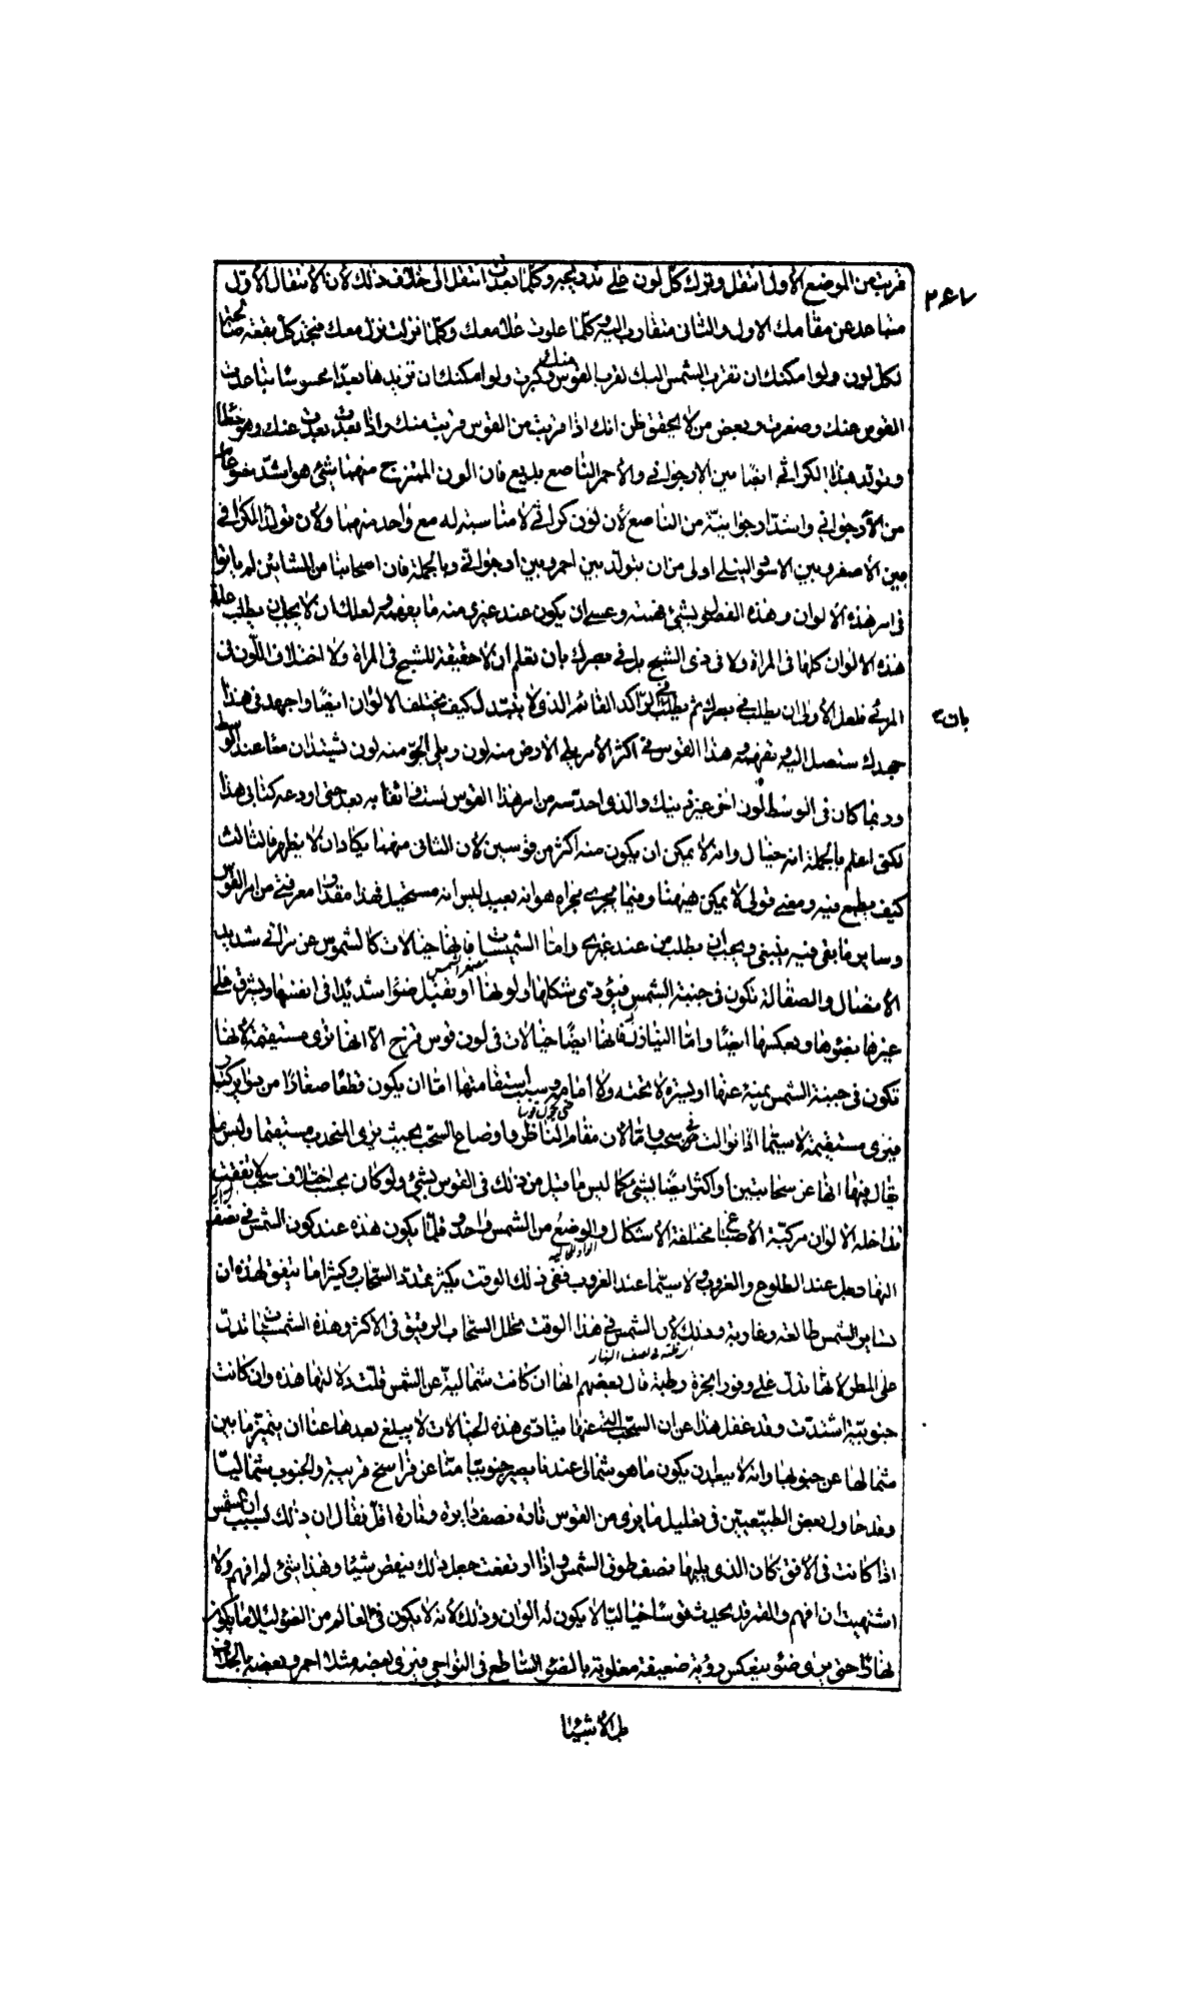 قريب من الموضع الأول انتقل وترك كل لون على تدريجه وكلما بعدت انتقل الى خلاف ذلك لان الانتقال الأول
متباعد عن مقامك الاول والثانى متقارب اليه كلما علوت علا معك وكلما نزلت نزل معك فتجد كل بقعة صالحة
لكل لون ولو امكنك ان تقرب الشمس اليك لقرب القوس منك وكبرت ولو امكنك ان تزيدها بعدا محسوسا تباعدت
القوس عنك وصغرت وبعض من لا يحقق ظن انك اذا قربت من القوس قربت منك واذا بعدت بعدت عنك وهو خطأ
وتولد هذا الكراثى ايضا بين الارجوانى والأحمر الناصع بديع فان اللون الممتزج منهما شئ هو اشد نصوعا
من الأرجوانى واشد ارجوانية من الناصع لأن لون كراثى لا مناسبة له مع واحد منهما ولان تولد الكراثى
بين الأصفر وبين الاسود النيلى اولى من ان يتولد بين احمر وبين ارجوانى وبالجملة فان اصحابنا من المشائين لم ياتوا
فى امر هذه الالوان وهذه الفصول بشئ فهمته وعسى ان يكون عند غيرى منه ما يفهمه ولعلك ان لا يجب ان يطلب علة
هذه الالوان كلها فى المراة ولا فى ذى الشبح بل فى بصرك بان تعلم ان لا حقيقة للشبح فى المراة ولا اختلاف اللون فى
المرئى فلعل الأولى ان يطلب فى بصرك ثم يطلب فى الراكد القائم الذى لا يتبدل كيف يختلف الالوان ايضا واجهد فى هذا
جهدك ستصل اليه وتفهمه هذا القوس فى اكثر الأمر يلى الارض منه لون ويلى الجو منه لون يشيندان معا عند الوسط
وربما كان فى الوسط لون اخر غير ذينك والذى احدسه من امر هذا القوس لست واثقا به بعد حتى اودعه كتابى هذا
لكنى اعلم بالجملة انه خيال وانه لا يمكن ان يكون منه اكثر من قوسين لأن الثانى منهما يكاد ان لا يظهر فالثالث
كيف يطمع فيه ومعنى قولى لا يمكن هيهنا وفيما يجرى مجراه هو انه بعيد ليس انه مستحيل فهذا مقدار معرفتى من امر القوس
وساير ما بقى فيه ينبغى ويجب ان يطلب من عند غيرى واما الشميسات فانها خيالات كالشموس عن مرائى شديدة
الأتصال والصقالة تكون فى جنبة الشمس فيؤدى شكلها ولونها او تقبل ضوءا شديدا فى انفسها وتشرق على
غيرها بضوئها وبعكسها ايضا واما النيازك فانها ايضا خيالات فى لون قوس قزح الا انها ترى مستقيمة لأنها
تكون فى جنبة الشمس يمنة عنها او يسرة لا تحته ولا امامه وسبب استقامتها اما ان يكون قطعا صغارا من دواير كبار
فيرى مستقيمة لاسيما اذا توالت من سحب واما لأن مقام الناظر واوضاع السحب بحيث يرى المنحدب مستقيما وليس ما
يقال فيها انها عن سحابتين او اكثر ايضا بشئ كما ليس ما قيل من ذلك فى القوس بشئ ولو كان بحسب اختلاف سحب لا تفقت
تداخله الالوان مركبة الأصباغ مختلفة الأشكال والوضع من الشمس واحد وقلما يكون هذه عند كون الشمس فى نصف
النهار بل عند الطلوع والغروب ولا سيما عند الغروب ففى ذلك الوقت يكثر تمدد السحاب وكثيرا ما يتفق لهذه ان
تساير الشمس طالعة وغاربة وذلك لأن الشمس فى هذا الوقت تحلل السحاب الرقيق فى الاكثر وهذه الشميسات تدل
على المطر لانها تدل على وفور ابخرة رطبة قال بعضهم انها ان كانت شمالية عن الشمس قلت دلالتها هذه وان كانت
جنوبية اشتدت وقد غفل هذا عن ان السحب التى عنها يتادى هذه الخيالات لا يبلغ بعدها عنا ان يتميز ما بين
شمالها عن جنوبها وانه لا يبعد ان يكون ما هو شمالى عندنا يصير جنوبيا منا عن فراسخ قريبة والجنوب شماليا
وقد حاول بعض الطبيعيين فى تعليل ما يرى من القوس تارة نصف دايرة وتارة اقل فقال ان ذلك لسبب ان الشمس
اذا كانت فى الافق كان الذى يليها نصف طوق الشمس واذا ارتفعت جعل ذلك ينقص شيئا وهذا شئ لم افهم ولا
اشتهيت ان افهم والقمر قد يحدث قوسا خياليا لا يكون له الوان وذلك لأنه لا يكون فى العالم من الضوء ليلا ما يكون
نهارا حتى يرى ضوء ينعكس رؤية ضعيفة مغلوبة بالضوء الساطع فى النواحى فيرى بعضه مثلا احمر وبعضه بالخلاف
بل الأشيا
٢٤٧